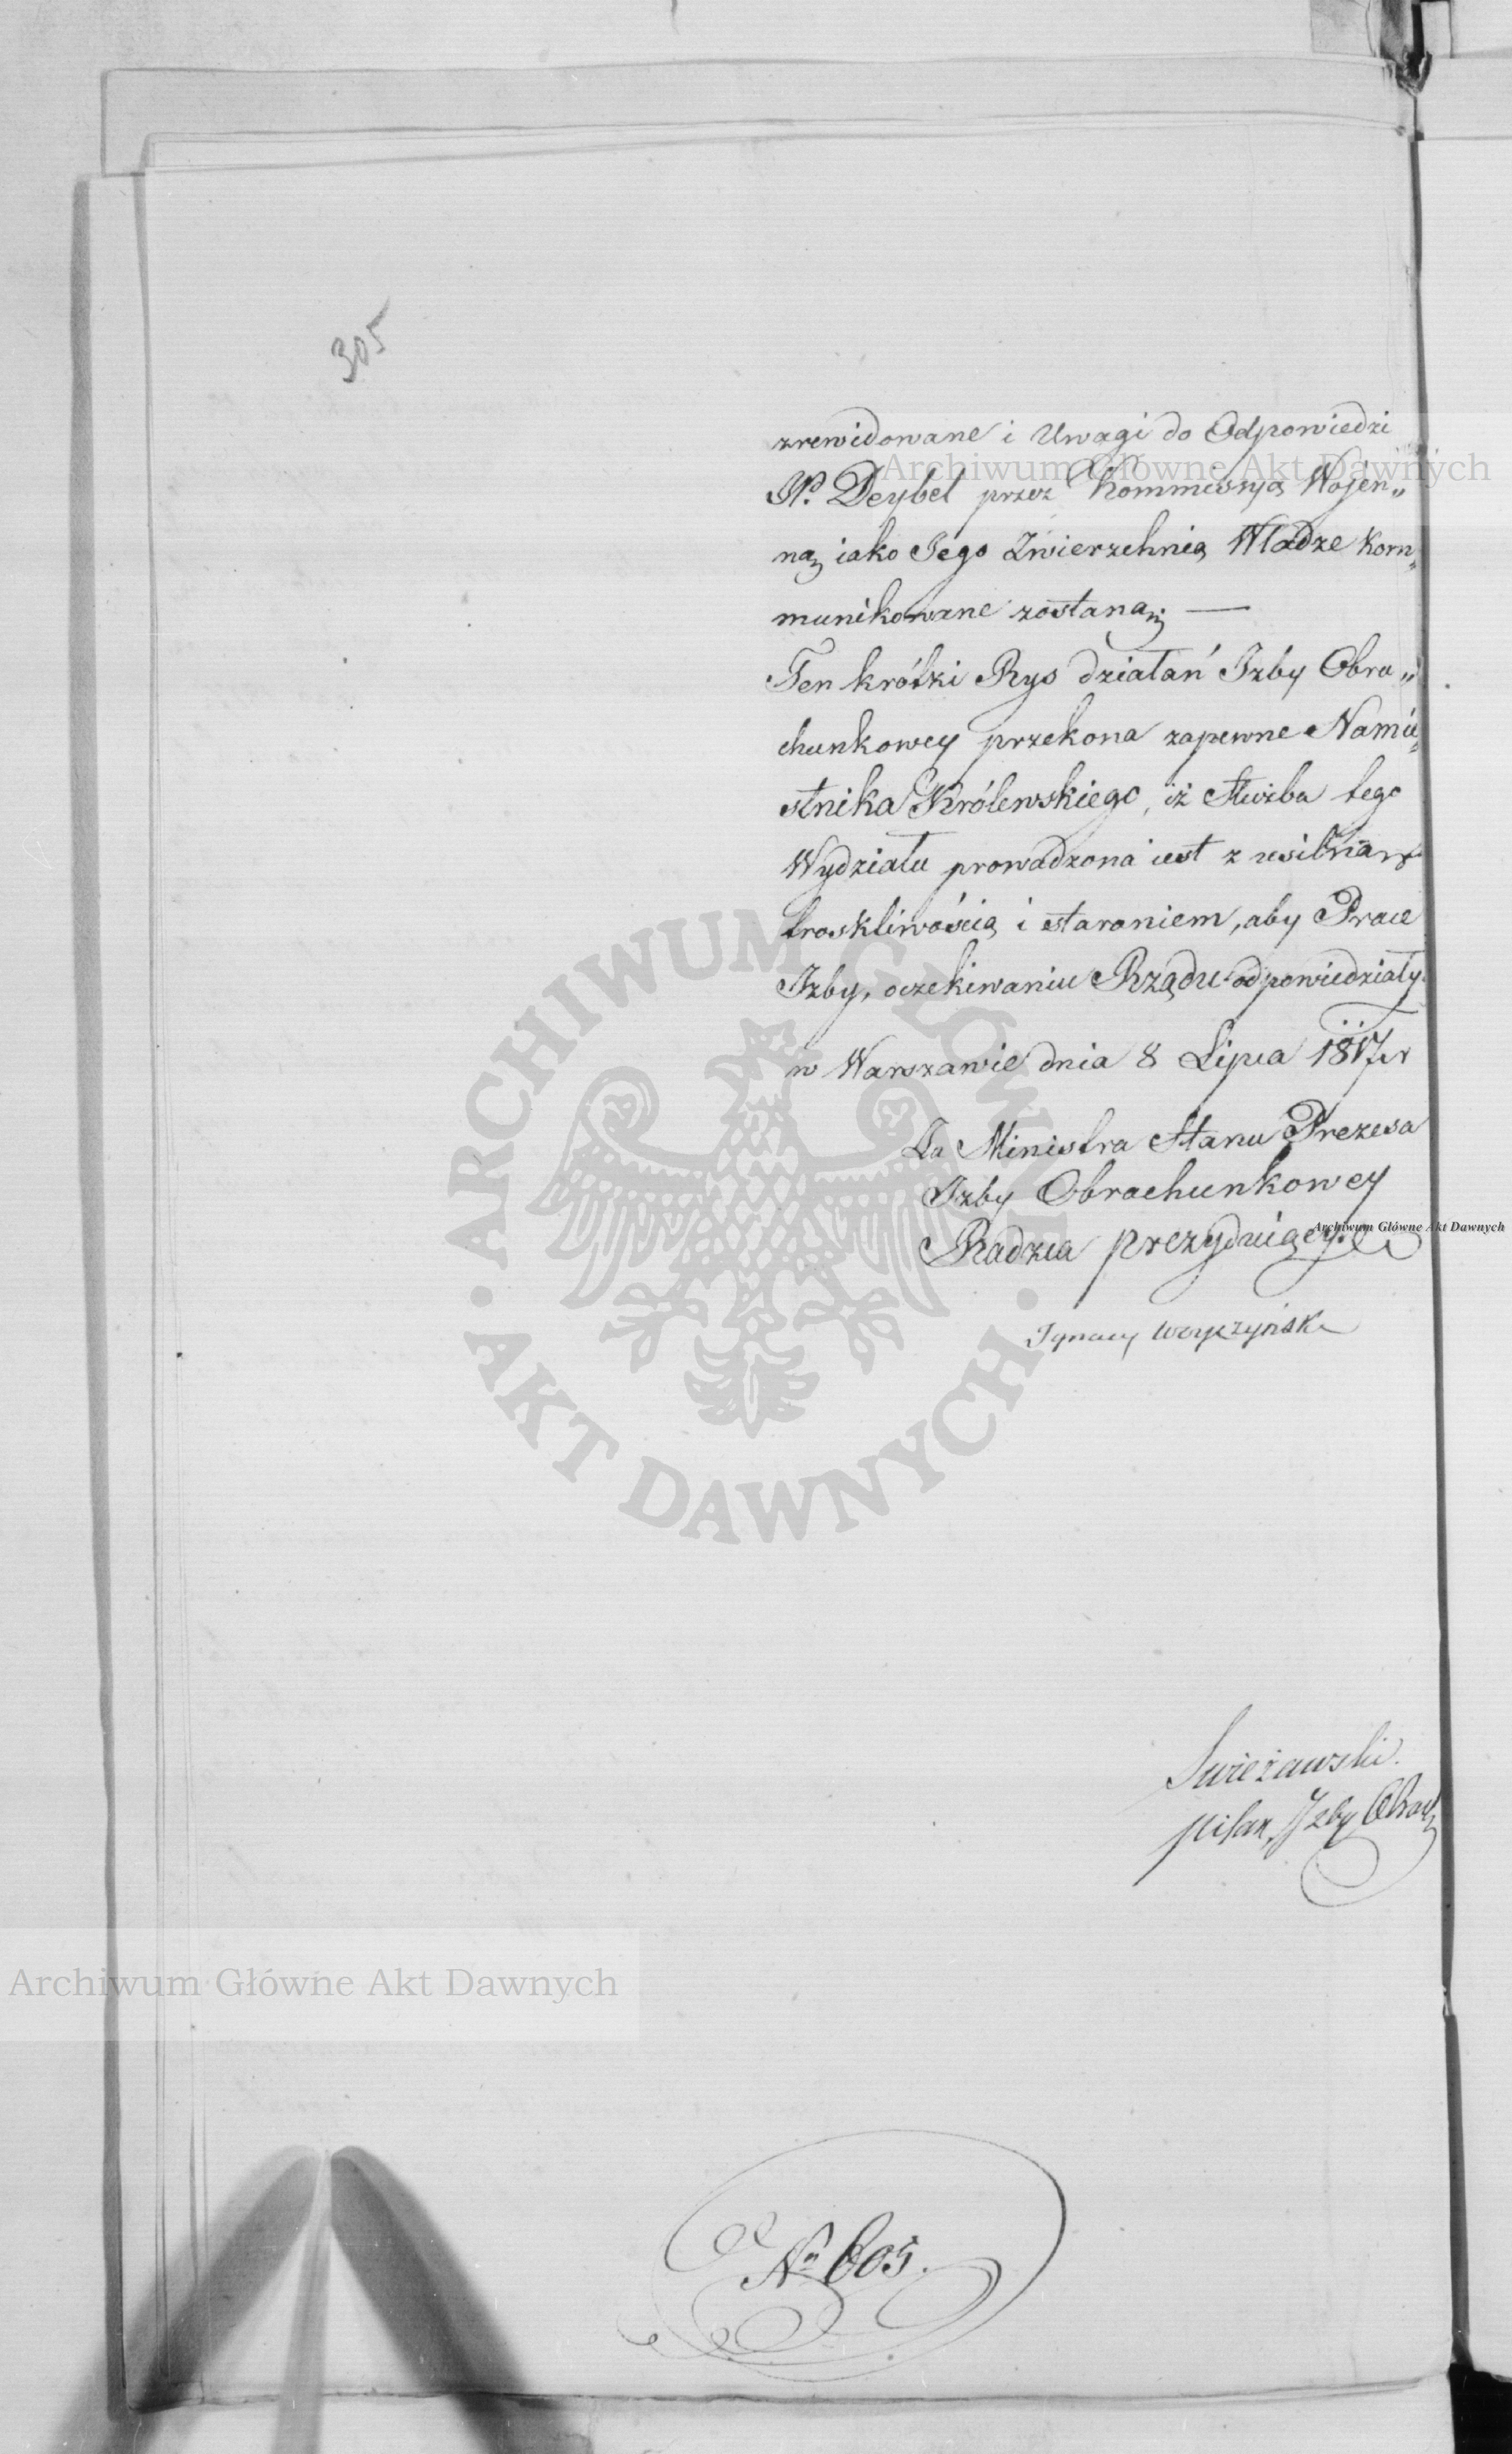 305
zrewidowane i Uwagi do Odpowiedzi
JP. Deybel przez Kommissyą Wojen„
ną iako Jego Zwierzchnią Władze kom„
munikowane zostaną; —
Ten krótki Rys działań Izby Obra„
chunkowey przekona zapewne Namie„
stnika Królewskiego, iż Służba tego
Wydziału prowadzona iest z usilną
troskliwością i staraniem, aby Prace
Izby, oczekiwaniu Rządu odpowiedziały.
w Warszawie dnia 8 Lipca 1817 r
Za Ministra Stanu Prezesa
Izby Obrachunkowey
Radzca prezyduiący
Ignacy
Swieżawski.
pisarz Izby Obrach
No 605.
Archiwum Główne Akt Dawnych
Archiwum Główne Akt Dawnych
Archiwum Główne Akt Dawnych
ARCHIWUM GŁÓWNE • AKT DAWNYCH •